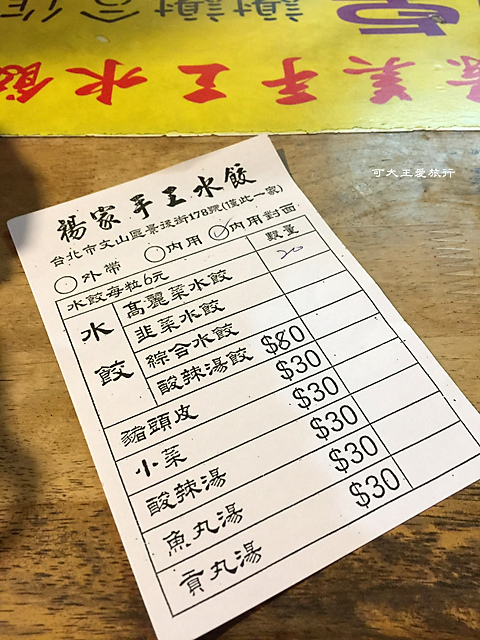 謝謝合作
手工水餃
可大王愛旅行
楊家手工水餃
台北市文山區景後街178號(僅此一家)
外帶 內用 ✓內用對面
水餃每粒6元 數量
水餃
高麗菜水餃 20
韭菜水餃
綜合水餃
酸辣湯餃 $80
豬頭皮 $30
小菜 $30
酸辣湯 $30
魚丸湯 $30
貢丸湯 $30